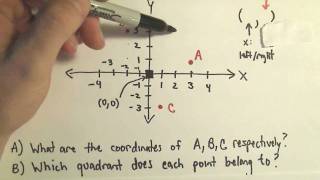 Y
( , )
x:
left/right
3
2
1
A
-3 -2 -1
X
-4
1 2 3 4
(0,0)
-1
-2
-3
C
A) What are the coordinates of A, B, C respectively?
B) Which quadrant does each point belong to?